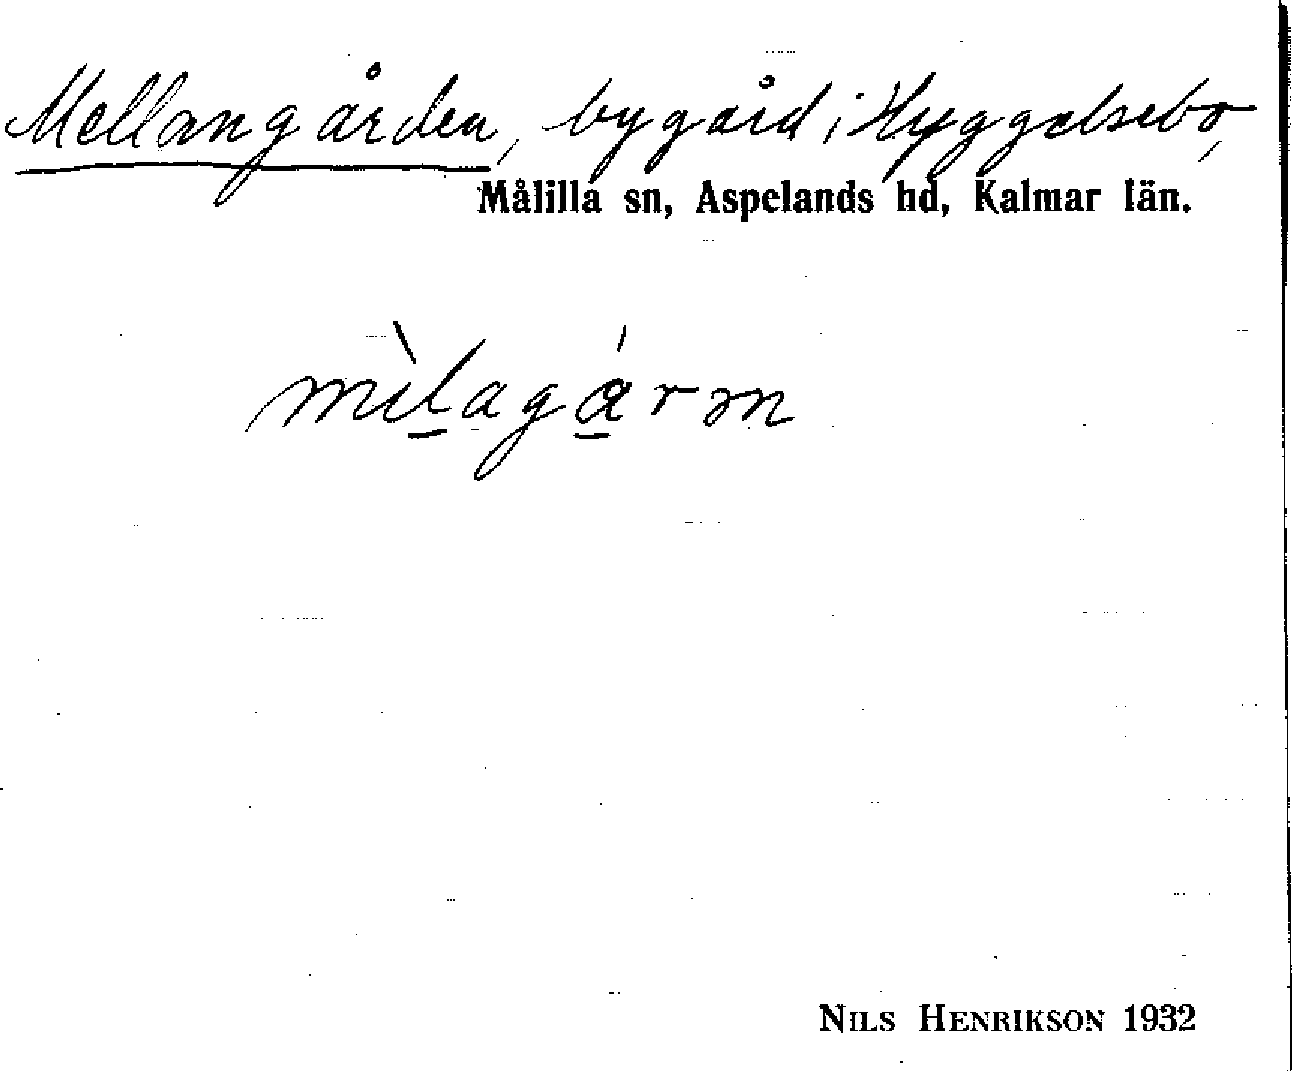 Mellangården, bygård i Hyggelsebo,
Målilla sn, Aspelands hd, Kalmar län.
mìlagárən
NILS HENRIKSON 1932